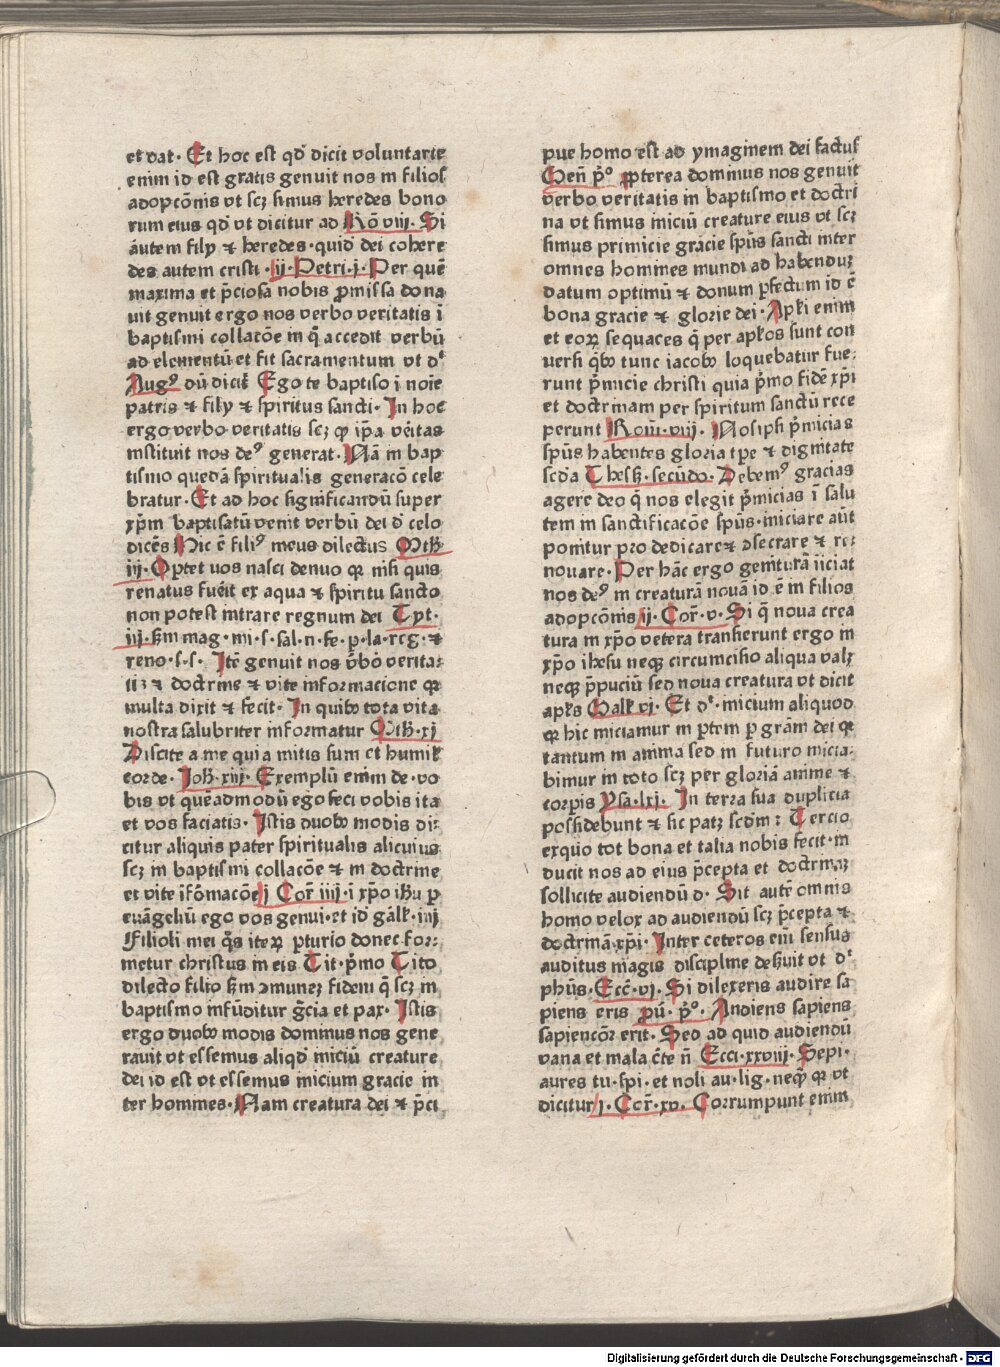 et dat· Et hoc est qd̕ dicit voluntarie
enim id est gratis genuit nos in filios
adopcōnis vt scꝫ simus heredes bono
rum eius qd̕ vt dicitur ad Rō viij. Si
autem filij ⁊ heredes·quid̕ dei cohere
des autem cristi·ij·Petri·j·Per quē
maxima et p̄ciosa nobis ꝓmissa dona
uit genuit ergo nos verbo veritatis ī
baptismi collacōe in q̄ accedit verbū
ad elementū et fit sacramentum vt dᵗ
Augꝰ dū dicit̕ Ego te baptiso ī noīe
patris ⁊ filij ⁊ spiritus sancti· In hoc
ergo verbo veritatis scꝫ ꝙ ip̄a veritas
instituit nos deꝰ generat·Nā in bap
tismo quedā spiritualis generacō cele
bratur·Et ad hoc significandū super
xp̄m baptisatū venit verbū dei d̕ celo
dicēs Hic ē filiꝰ meus dilectus Mtħ
iij·Optet vos nasci denuo ꝙ nisi quis
renatus fuēit ex aqua ⁊ spiritu sancto
non potest intrare regnum dei Tyt·
iij·sm̄ mag·mi·s·sal·n·fe·p·la·reg·⁊
reno·s·s· Itē genuit nos v̄bo verita⸗
tis ⁊ doctrine ⁊ vite informacione ꝙ
multa dixit ⁊ fecit·In quibꝰ tota vita
nostra salubriter informatur Mtħ·xj
Discite a me quia mitis sum et humil̕
corde·Joħ·xiij·Exemplū enim de·vo
bis vt quēadmodū ego feci vobis ita
et vos faciatis·Istis duobꝰ modis di⸗
citur aliquis pater spiritualis alicuius
scꝫ in baptismi collacōe ⁊ in doctrine
et vite īfōmacōe j Cor̄ iiij·i xp̄o iħu ꝑ
euāgeliū ego vos genui·et id̕ gall̕·iiij
Filioli mei q̄s iteꝝ ꝑturio donec for⸗
metur christus in eis Tit·p̄mo Tito
dilecto filio sm̄ ꝯmuneꝫ fidem q̄ scꝫ in
baptismo infūditur gr̄cia et pax·Istis
ergo duobꝰ modis dominus nos gene
rauit vt essemus aliqd̕ iniciū creature
dei id est vt essemus inicium gracie in
ter hommes·Nam creatura dei ⁊ p̄ci
pue homo est ad ymaginem dei factus
Gen̄ p̄º ꝓpterea dominus nos genuit
verbo veritatis in baptismo et doctri
na vt simus iniciū creature eius vt scꝫ
simus primicie gracie spūs sancti inter
omnes hommes mundi ad habenduꝫ
datum optimū ⁊ donum ꝑfectum id ē
bona gracie ⁊ glorie dei·Apl̕i enim
et eoꝝ sequaces q̄ per apl̕os sunt con
uersi qn̄ tunc iacobꝰ loquebatur fue⸗
runt p̄micie christi quia p̄mo fidē xp̄i
et doctrinam per spiritum sanctū rece
perunt Rom̄·viij. Nosip̄i p̄micias
spūs habentes gloria spe ⁊ dignitate
scd̄a Thess̄·secūdo·Debemꝰ gracias
agere deo q̄ nos elegit p̄micias ī salu
tem in sanctificacōe spūs·iniciare aūt
ponitur pro dedicare⁊ ꝯsecrare ⁊ re⸗
nouare·Per hāc ergo genitūrā īiciat
nos deꝰ in creaturā nouā id ē in filios
adopcōnis ij·Cor̄·v·Si q̄ noua crea
tura in xp̄o vetera transierunt ergo in
xp̄o iħesu neqꝫ circumcisio aliqua valꝫ
neqꝫ p̄puciū sed noua creatura vt dicit
apl̕s Gall̕ vj·Et dᵗ·inicium aliquod
ꝙ hic iniciamur in ꝑtem p gr̄am dei ꝙ
tantum in anima sed in futuro inicia⸗
bimur in toto scꝫ per gloriā anime ⁊
corpis Ysa·lxj. In terra sua duplicia
possidebunt ⁊ sic patꝫ scd̄m: Tercio
exquo tot bona et talia nobis fecit·in
ducit nos ad eius p̄cepta et doctrinaꝫ
sollicite audiendū d· Sit autē omnis
homo velox ad audiendū scꝫ p̄cepta ⁊
doctrinā xp̄i·Inter ceteros em̄ sensus
auditus magis discipline deħuit vt dᵗ
phūs·Ecc̄·vj·Si dilexeris audire sa
piens eris ꝓū·p̄º·Audiens sapiens
sapiencōr erit·Sed ad quid audiendū
vana et mala c̄te n̄ Ecci·xxviij·Sepi·
aures tu·spi·et noli au·lig·neqꝫ ꝙ vt
dicitur j·Cor̄·xv·Corrumpunt enim
Digitalisierung gefördert durch die Deutsche Forschungsgemeinschaft - DFG